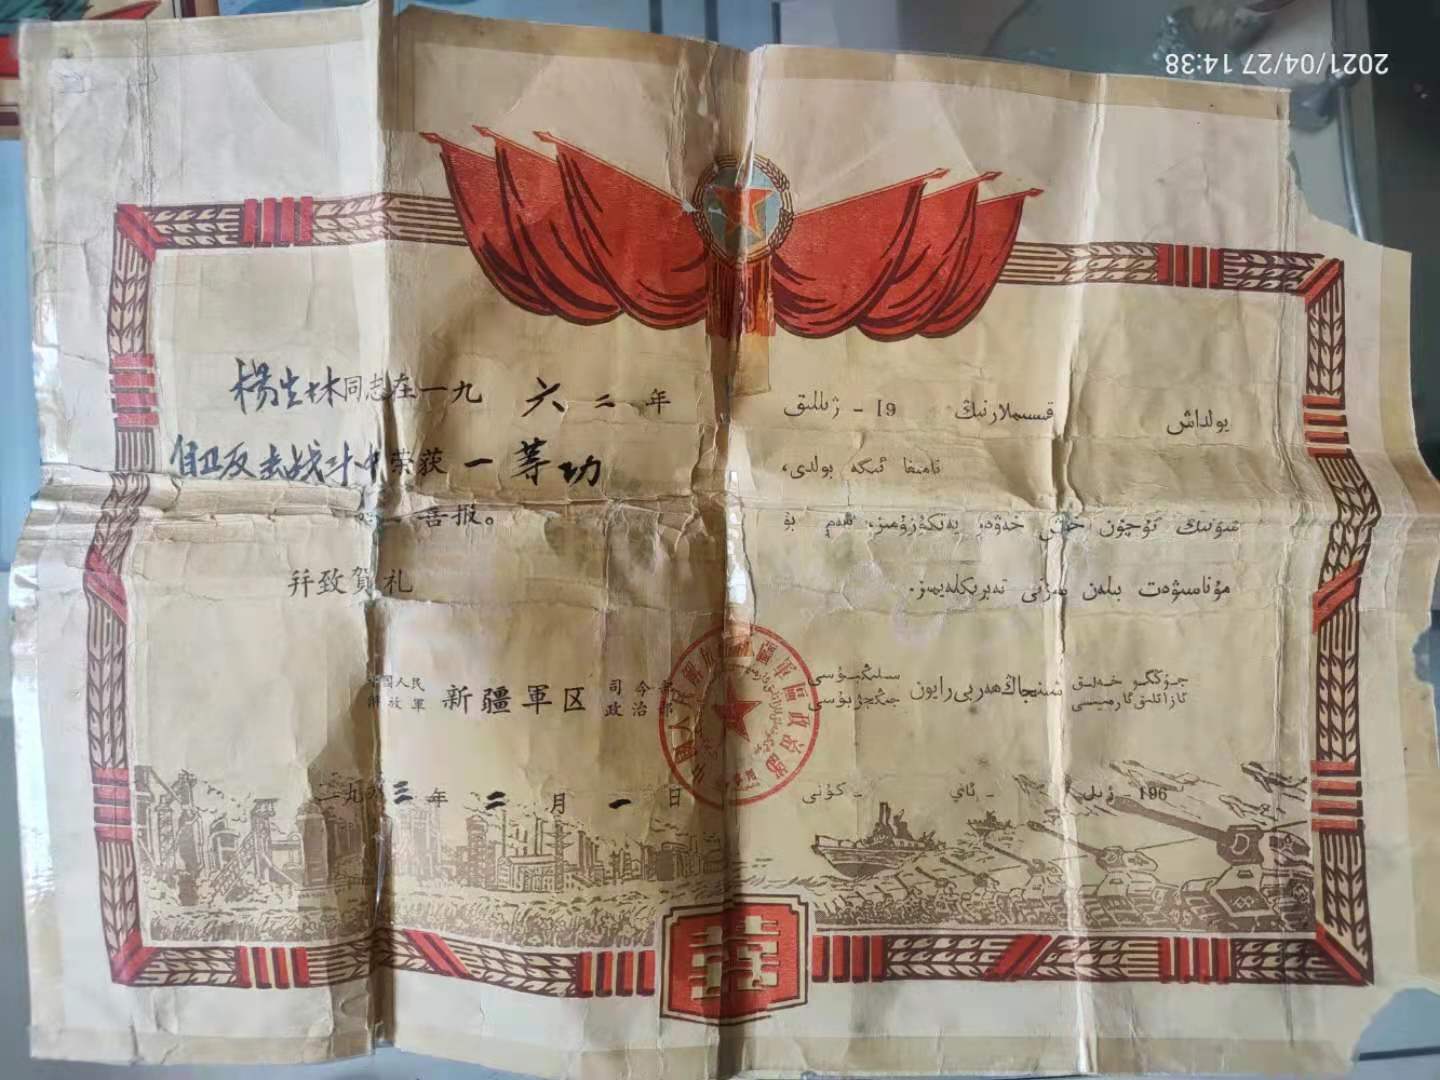 2021/04/27 14:38
杨生林同志在一九六二年
自卫反击战斗中荣获一等功
喜报。
并致贺礼
中国人民
解放军 新疆軍区 司令部
政治部
一九六三年二月一日
يولداش قىسىملارنىڭ 19 - ژىللىق
نامىغا ئىگە بولدى،
شۇنىڭ ئۈچۈن خۇش خەۋەر يەتكۈزۈمىز، ھەم بۇ
مۇناسىۋەت بىلەن سىزنى تەبرىكلەيمىز.
جۇڭگو خەلق
ئازاتلىق ئارمىيىسى شىنجاڭ ھەربى رايون سىلىڭبۇسى
جىڭجىبۇسى
196 - ژىل - ئاي - كۈنى
囍